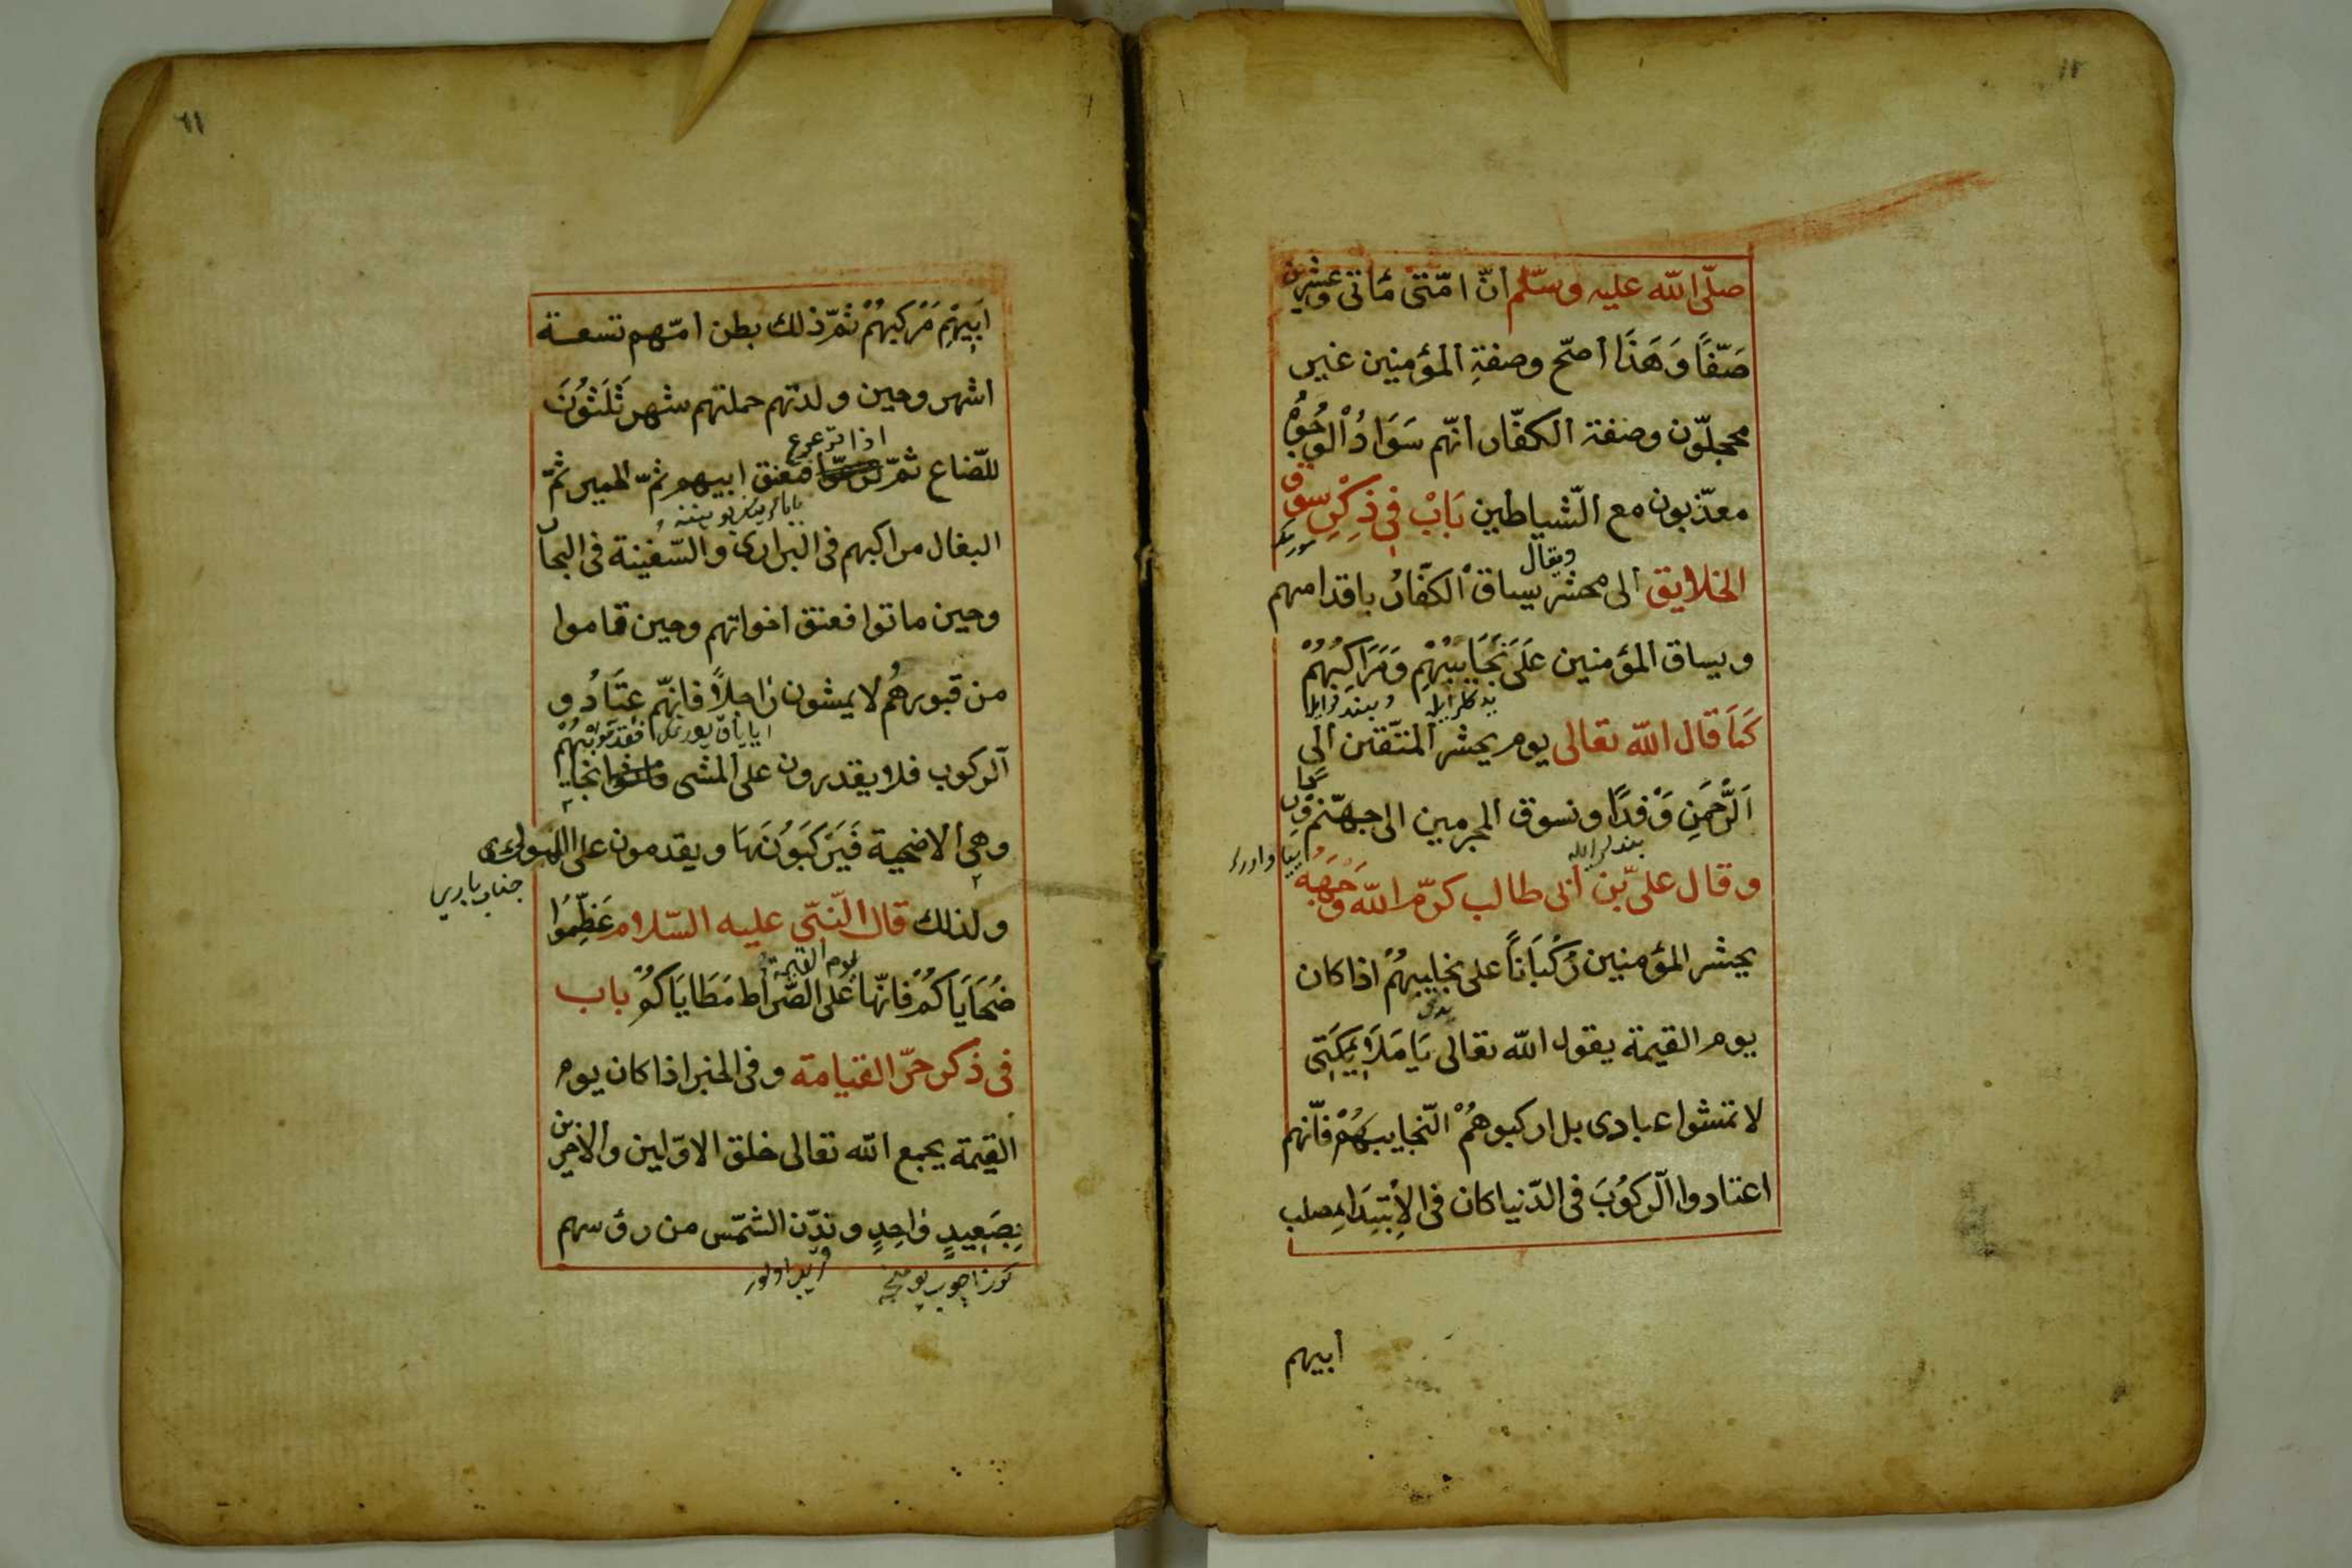 صلّى اللّه عليه وسلّم انّ امّتى مأتى وعشرين
صَفّاً وَهَذَا اصحّ وصفةِ المؤمنين غير
محجلّون وصفة الكفّار انّهم سَوَادُ الْوُجُوهْ
معذّبون مع الشّياطين بَابْ فِى ذِكْرِ سوق
الخلايق الى محشر ويقال يساق الكفّارُ باقدامهم
ويساق المؤمنين عَلَى نَجَايِبِهِمْ وَمَرَاكِبُهُمْ
كَمَا قال اللّه تعالى يوم يحشر المتّقين الى
اَلرَّحْمَنِ وَفْدًا ونسوق المجرمين الى جهنّم
وقال علىّ بن ابى طالب كرّم اللّه وَجْهَهُ
يحشر المؤمنين رُكْبَاناً على نجايبهُمْ اذا كان
يوم القيمة يقول اللّه تعالى يَا مَلَايِكَتِى
لا تمشوا عبادى بل اركبوهُمْ النّجايبهُمْ فانّهم
اعتادوا الرّكوُبَ فى الدّنيا كان فى الْاِبْتِدَا لِصلب
ابيهم
٦١
اَبِيهِمْ مَرْكَبهُمْ ثمّ ذلك بطن امّهم تسعة
اشهر وحين ولدتهم حملتهم شهر ثَلَثوُنَ
للرّضاع ثمّ اذا ترعرع فعنق ابيهم ثمّ الحمير ثمّ
البغال مراكبهم فى البرارى والسّفينة فى البحار
وحين ماتوا فعنق اخواتهم وحين قاموا
من قبورهُم لا يمشون رَاجلاً فانّهم عتَادُو
الركوب فلا يقدرون على المشى
وهى الاضحية فَيَرْكَبوُنَهَا ويقدمون على المولى
ولذلك قال النّبى عليه السّلام عَظِّمُوا
ضَحَايَاكُمْ فانّها يوم القيمة على الصّراط مَطَايَاكُمْ باب
فى ذكر حرّ القيامة وفى الخبر اذا كان يوم
القيمة يجمع اللّه تعالى خلق الاوّلين والآخرين
بِصَعِيدٍ وَاحِدٍ وتدّن الشمّس من رؤسهم